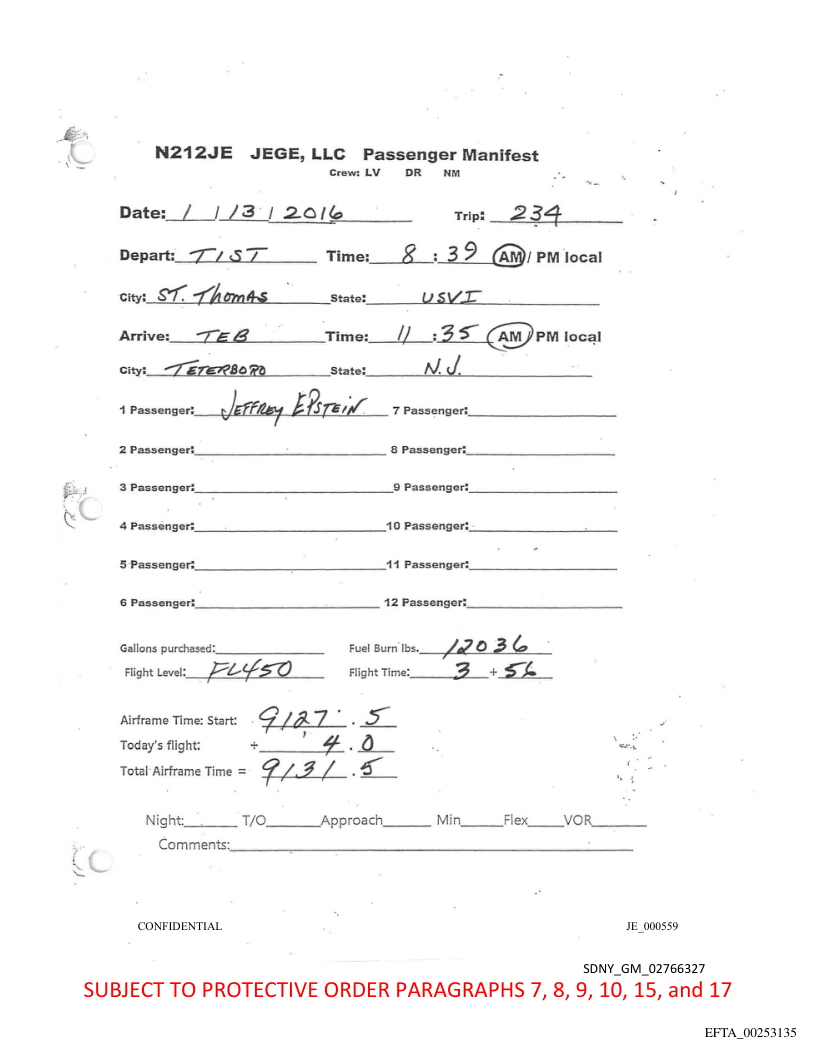 N212JE JEGE, LLC Passenger Manifest
Crew: LV DR NM
Date: 1 / 13 / 2016 Trip: 234
Depart: TIST Time: 8 : 39 AM / PM local
City: ST. THOMAS State: USVI
Arrive: TEB Time: 11 : 35 AM / PM local
City: TETERBORO State: N.J.
1 Passenger: JEFFREY EPSTEIN 7 Passenger:
2 Passenger: 8 Passenger:
3 Passenger: 9 Passenger:
4 Passenger: 10 Passenger:
5 Passenger: 11 Passenger:
6 Passenger: 12 Passenger:
Gallons purchased: Fuel Burn lbs. 12036
Flight Level: FL450 Flight Time: 3 + 56
Airframe Time: Start: 9127 . 5
Today's flight: + 4 . 0
Total Airframe Time = 9131 . 5
Night: T/O Approach Min Flex VOR
Comments:
CONFIDENTIAL JE_000559
SDNY_GM_02766327
SUBJECT TO PROTECTIVE ORDER PARAGRAPHS 7, 8, 9, 10, 15, and 17
EFTA_00253135